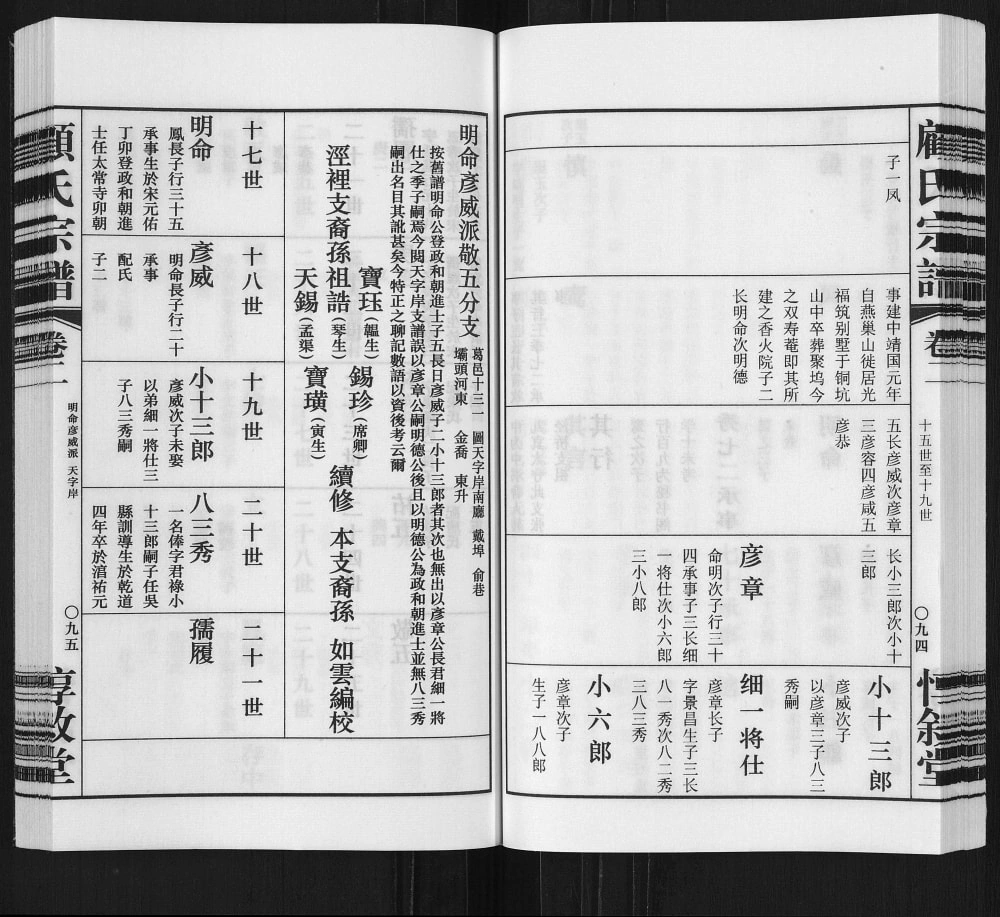 顧氏宗譜
卷二
十五世至十九世
〇九四
惇敘堂
子一凤
事建中靖国元年
自燕巢山徙居光
福筑别墅于铜坑
山中卒葬聚坞今
之双寿菴即其所
建之香火院子二
长明命次明德
五长彦威次彦章
三彦容四彦咸五
彦恭
长小三郎次小十
三郎
彦章
命明次子行三十
四承事子三长细
一将仕次小六郎
三小八郎
小十三郎
彦威次子
以彦章三子八三
秀嗣
细一将仕
彦章长子
字景昌生子三长
八一秀次八二秀
三八三秀
小六郎
彦章次子
生子一八八郎
明命彥威派敬五分支
葛邑十三一 圖天字岸南廳 戴埠 俞巷
壩頭河東 金喬 東升
按舊譜明命公登政和朝進士子五長日彥威子二小十三郎者其次也無出以彥章公長君細一將
仕之季子嗣焉今閱天字岸支譜誤以彥章公嗣明德公後且以明德公為政和朝進士並無八三秀
嗣出名目其訛甚矣今特正之聊記數語以資後考云爾
寶珏(韞生) 錫珍(席卿)
涇裡支裔孫祖誥(琴生) 續修 本支裔孫 如雲編校
天錫(孟渠) 寶璜(寅生)
十七世
十八世
十九世
二十世
二十一世
明命
鳳長子行三十五
承事生於宋元佑
丁卯登政和朝進
士任太常寺卯朝
彥威
明命長子行二十
承事
配氏
子二
小十三郎
彥威次子未娶
以弟細一將仕三
子八三秀嗣
八三秀
一名俸字君祿小
十三郎嗣子任吳
縣訓導生於乾道
四年卒於湻祐元
孺履
顧氏宗譜
卷二
明命彥威派 天字岸
〇九五
惇敘堂